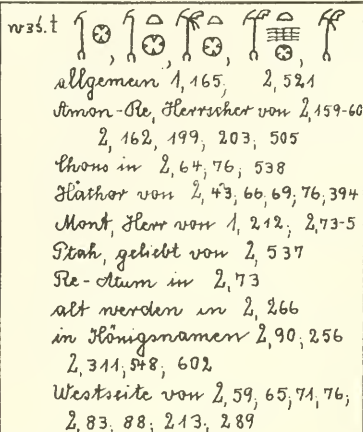 w3ś.t 𓌀𓊖, 𓌀𓏏𓊖, 𓌀𓊖, 𓌀𓏏𓈇𓊖, 𓌀
allgemein 1,165; 2,521
Amon-Re, Herrscher von 2,159-60
2, 162, 199; 203; 505
Chons in 2,64; 76; 538
Hathor von 2, 43; 66, 69; 76, 394
Mont, Herr von 1, 212; 2,73-5
Ptah, geliebt von 2, 537
Re-Atum in 2,73
alt werden in 2, 266
in Königsnamen 2,90; 256
2,311; 548; 602
Westseite von 2,59; 65; 71, 76;
2,83; 88; 213; 289